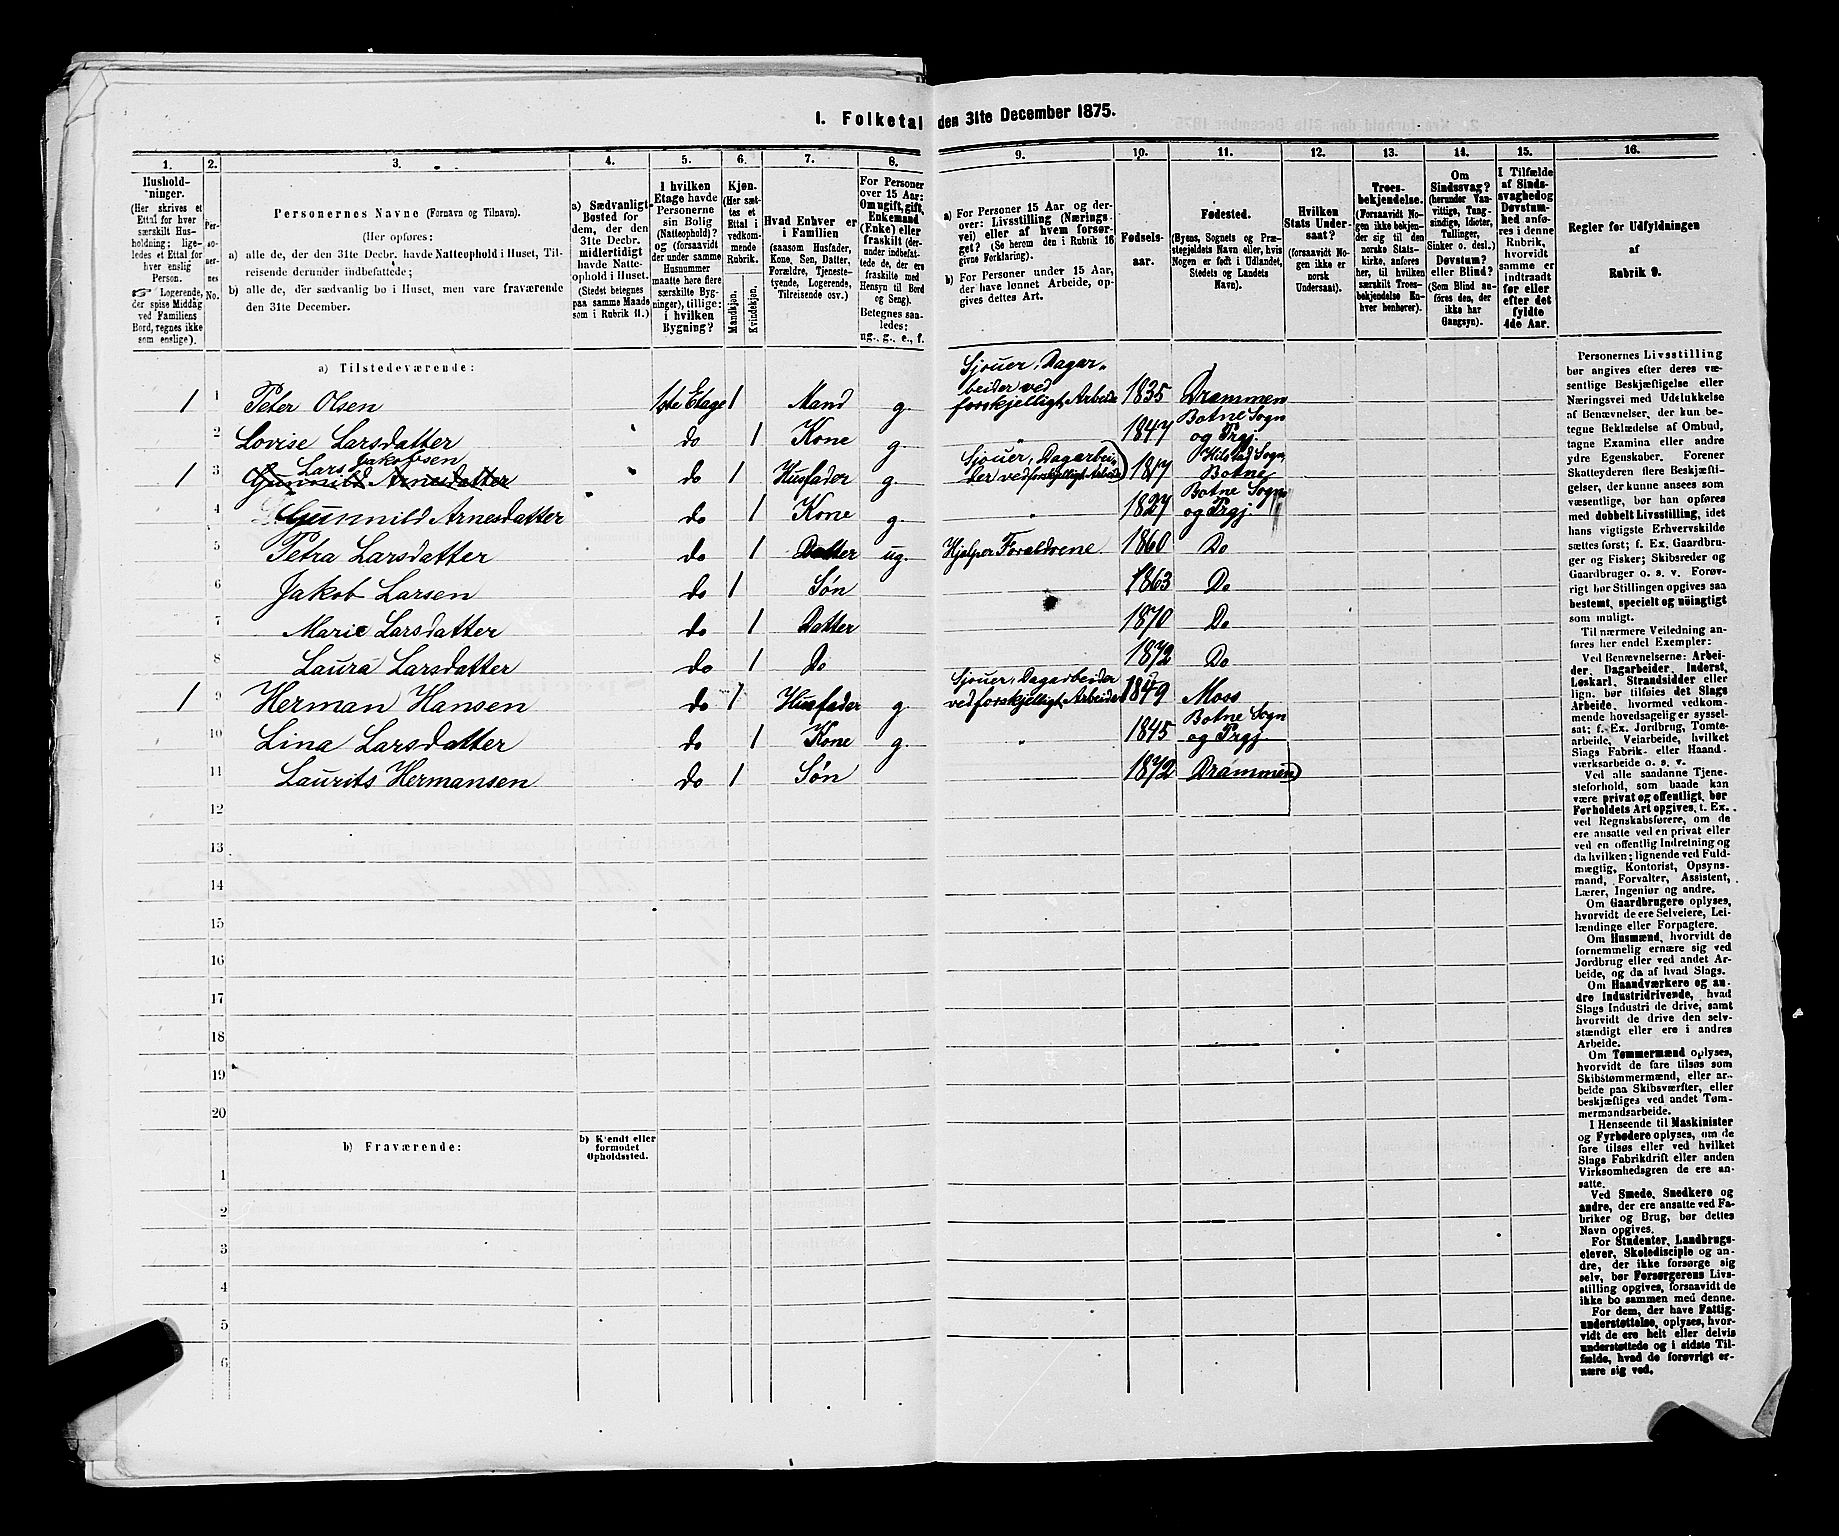 I. Folketal den 31te December 1875.
1.
2.
3.
4.
5.
6.
7.
8.
9.
10.
11.
12.
13.
14.
15.
16.
Hushold-
ninger.
(Her skrives et
Ettal for hver
særskilt Hus-
holdning; lige-
ledes et Ettal for
hver enslig
Person.
☞ Logerende,
der spise Middag
ved Familiens
Bord, regnes ikke
som enslige).
Per-
so-
ner-
nes
No.
Personernes Navne (Fornavn og Tilnavn).
(Her opføres:
a) alle de, der den 31te Decbr. havde Natteophold i Huset, Til-
reisende derunder indbefattede;
b) alle de, der sædvanlig bo i Huset, men vare fraværende
den 31te December.
a) Sædvanligt
Bosted for
dem, der den
31te Decbr.
midlertidigt
havde Natte-
ophold i Huset.
(Stedet betegnes
paa samme Maade
som i Rubrik 11.)
I hvilken
Etage havde
Personerne
sin Bolig
(Natteophold)?
og (forsaavidt
der under samme
Husnummer
maatte høre flere
særskilte Byg-
ninger), tillige:
i hvilken
Bygning?
Kjøn.
(Her sæt-
tes et
Ettal i
vedkom-
mende
Rubrik.
Mandkjøn.
Kvindekjøn.
Hvad Enhver er
i Familien
(saasom Husfader,
Kone, Søn, Datter,
Forældre, Tjeneste-
tyende, Logerende,
Tilreisende osv.)
For Personer
over 15 Aar:
Om ugift, gift,
Enkemand
(Enke) eller
fraskilt (der-
under indbefat-
tede de, der ere
fraskilte med
Hensyn til Bord
og Seng).
Betegnes saa-
ledes:
ug., g., e., f.
a) For Personer 15 Aar og der-
over: Livsstilling (Nærings-
vei) eller af hvem forsør-
get? (Se herom den i Rubrik 16
givne Forklaring).
b) For Personer under 15 Aar,
der have lønnet Arbeide, op-
gives dettes Art.
Fødsels-
aar.
Fødested.
(Byens, Sognets og Præ-
stegjeldets Navn eller, hvis
Nogen er født i Udlandet,
Stedets og Landets
Navn).
Hvilken
Stats Under-
saat?
(forsaavidt No-
gen ikke er
norsk
Undersaat).
Troes-
bekjendelse.
(Forsaavidt No-
gen ikke bekjen-
der sig til den
norske Stats-
kirke, anføres
her, til hvilken
særskilt Troes-
bekjendelse En-
hver henhører).
Om
Sindssvag?
(herunder Van-
vittige, Tung-
sindige, Idioter,
Tullinger,
Sinker o. desl.)
Døvstum?
eller Blind?
(Som Blind an-
føres den, der
ikke har
Gangsyn).
I Tilfælde
af Sinds-
svaghed og
Døvstum-
hed anfø-
res i denne
Rubrik,
hvorvidt
samme er
indtraadt
før eller
efter det
fyldte
4de Aar.
Regler for Udfyldningen
af
Rubrik 9.
a) Tilstedeværende:
1 1 Peter Olsen 1ste Etage 1 Mand g. Sjouer, Dagar-
beider ved
forskjelligt Arbeide 1835 Drammen
2 Lovise Larsdatter do 1 Kone g. " 1847 Botne Sogn
og Prgj.
1 3 Lars Jakobsen
Gunnild Arnesdatter do 1 Husfader g. Sjouer, Dagarbei-
der ved forskjelligt Arbeide) 1817 Hilstad Sogn,
Botne
4 Gunnild Arnesdatter do 1 Kone g. " 1827 Botne Sogn
og Prgj.
5 Petra Larsdatter do 1 Datter ug. Hjelper Forældrene 1860 Do
6 Jakob Larsen do 1 Søn 1863 Do
7 Marie Larsdatter do 1 Datter 1870 Do
8 Laura Larsdatter do 1 Do 1872 Do
1 9 Herman Hansen do 1 Husfader g. Sjouer, Dagarbeider
ved forskjelligt Arbeide 1849 Moos
10 Lina Larsdatter do 1 Kone g. " 1845 Botne Sogn
og Prgj.
11 Laurits Hermansen do 1 Søn 1872 Drammen)
12
13
14
15
16
17
18
19
20
b) Fraværende:
b) Kjendt eller
formodet
Opholdssted.
1
2
3
4
5
6
Personernes Livsstilling
bør angives efter deres væ-
sentlige Beskjæftigelse eller
Næringsvei med Udelukkelse
af Benævnelser, der kun be-
tegne Beklædelse af Ombud,
tagne Examina eller andre
ydre Egenskaber. Forener
Skatteyderen flere Beskjæfti-
gelser, der kunne ansees som
væsentlige, bør han opføres
med dobbelt Livsstilling, idet
hans vigtigste Erhvervskilde
sættes først; f. Ex. Gaardbru-
ger og Fisker; Skibsreder og
Gaardbruger o. s. v. Forøv-
rigt bør Stillingen opgives saa
bestemt, specielt og nöiagtigt
som muligt.
Til nærmere Veiledning an-
føres her endel Exempler:
Ved Benævnelserne: Arbei-
der, Dagarbeider, Inderst,
Løskarl, Strandsidder eller
lign. bør tilføies det Slags
Arbeide, hvormed vedkom-
mende hovedsagelig er syssel-
sat; f. Ex. Jordbrug, Tomte-
arbeide, Veiarbeide, hvilket
Slags Fabrik- eller Haand-
værksarbeide o. s. v.
Ved alle saadanne Tjene-
steforhold, som baade kan
være privat og offentligt, bør
Forholdets Art opgives, t. Ex.
ved Regnskabsførere, om de
ere ansatte ved en privat eller
ved en offentlig Indretning og
da hvilken; lignende ved Fuld-
mægtig, Kontorist, Opsyns-
mand, Forvalter, Assistent,
Lærer, Ingeniør og andre.
Om Gaardbrugere oplyses,
hvorvidt de ere Selveiere, Lei-
lændinge eller Forpagtere.
Om Husmænd, hvorvidt de
fornemmelig ernære sig ved
Jordbrug eller ved andet Ar-
beide, og da af hvad Slags.
Om Haandværkere og an-
dre Industridrivende, hvad
Slags Industri de drive, samt
hvorvidt de drive den selv-
stændigt eller ere i andres
Arbeide.
Om Tømmermænd oplyses,
hvorvidt de fare tilsøs som
Skibstømmermænd, eller ar-
beide paa Skibsværfter, eller
beskjæftiges ved andet Tøm-
mermandsarbeide.
I Henseende til Maskinister
og Fyrbødere oplyses, om de
fare tilsøs eller ved hvilket
Slags Fabrikdrift eller anden
Virksomhedsgren de ere an-
satte.
Ved Smede, Snedkere og
andre, der ere ansatte ved Fa-
briker og Brug, bør dettes
Navn opgives.
For Studenter, Landbrugs-
elever, Skoledisciple og an-
dre, der ikke forsørge sig
selv, bør Forsørgerens Livs-
stilling opgives, forsaavidt de
ikke bo sammen med denne.
For dem, der have Fattig-
understøttelse, oplyses, hvor-
vidt de ere helt eller delvis
understøttede og i sidste Til-
fælde, hvad de forøvrigt er-
nære sig ved.